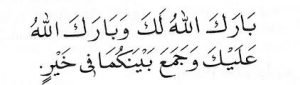 بَارَكَ اللهُ لَكَ وَبَارَكَ اللهُ
عَلَيْكَ وَجَمَعَ بَيْنَكُمَا فِى خَيْرٍ.